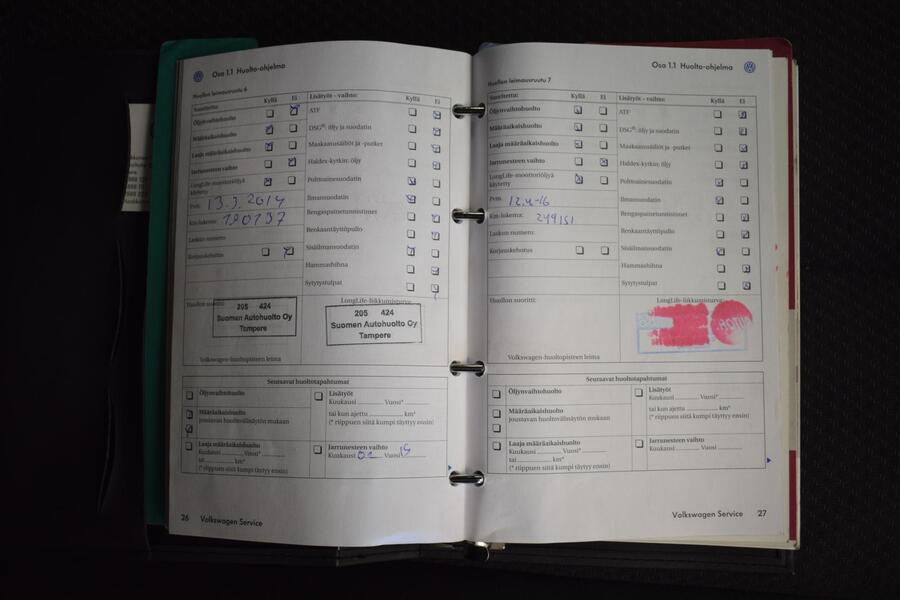 Osa 1.1 Huolto-ohjelma
Huollon leimausruutu 6
Suoritettu: Kyllä Ei
Öljynvaihtohuolto
Määräaikaishuolto
Laaja määräaikaishuolto
Jarrunesteen vaihto
LongLife-moottoriöljyä
käytetty
Pvm. 13.3.2014
Km-lukema: 190137
Laskun numero:
Korjauskehotus
Lisätyöt - vaihto: Kyllä Ei
ATF
DSG®: öljy ja suodatin
Maakaasusäiliöt ja -putket
Haldex-kytkin: öljy
Polttoainesuodatin
Ilmansuodatin
Rengaspainetunnistimet
Renkaantäyttöpullo
Sisäilmansuodatin
Hammashihna
Sytytystulpat
Huollon suoritti:
205 424
Suomen Autohuolto Oy
Tampere
LongLife-liikkumisturva:
205 424
Suomen Autohuolto Oy
Tampere
Volkswagen-huoltopisteen leima
Seuraavat huoltotapahtumat
Öljynvaihtohuolto
Määräaikaishuolto
joustavan huoltovälinäytön mukaan
Laaja määräaikaishuolto
Kuukausi Vuosi*
tai km*
(* riippuen siitä kumpi täytyy ensin)
Lisätyöt
Kuukausi Vuosi*
tai kun ajettu km*
(* riippuen siitä kumpi täytyy ensin)
Jarrunesteen vaihto
Kuukausi 02 Vuosi
26 Volkswagen Service
Osa 1.1 Huolto-ohjelma
Huollon leimausruutu 7
Suoritettu: Kyllä Ei
Öljynvaihtohuolto
Määräaikaishuolto
Laaja määräaikaishuolto
Jarrunesteen vaihto
LongLife-moottoriöljyä
käytetty
Pvm. 12.4-16
Km-lukema: 249151
Laskun numero:
Korjauskehotus
Lisätyöt - vaihto: Kyllä Ei
ATF
DSG®: öljy ja suodatin
Maakaasusäiliöt ja -putket
Haldex-kytkin: öljy
Polttoainesuodatin
Ilmansuodatin
Rengaspainetunnistimet
Renkaantäyttöpullo
Sisäilmansuodatin
Hammashihna
Sytytystulpat
Huollon suoritti:
LongLife-liikkumisturva:
Volkswagen-huoltopisteen leima
Seuraavat huoltotapahtumat
Öljynvaihtohuolto
Määräaikaishuolto
joustavan huoltovälinäytön mukaan
Laaja määräaikaishuolto
Kuukausi Vuosi*
tai km*
(* riippuen siitä kumpi täytyy ensin)
Lisätyöt
Kuukausi Vuosi*
tai kun ajettu km*
(* riippuen siitä kumpi täytyy ensin)
Jarrunesteen vaihto
Kuukausi Vuosi
Volkswagen Service 27